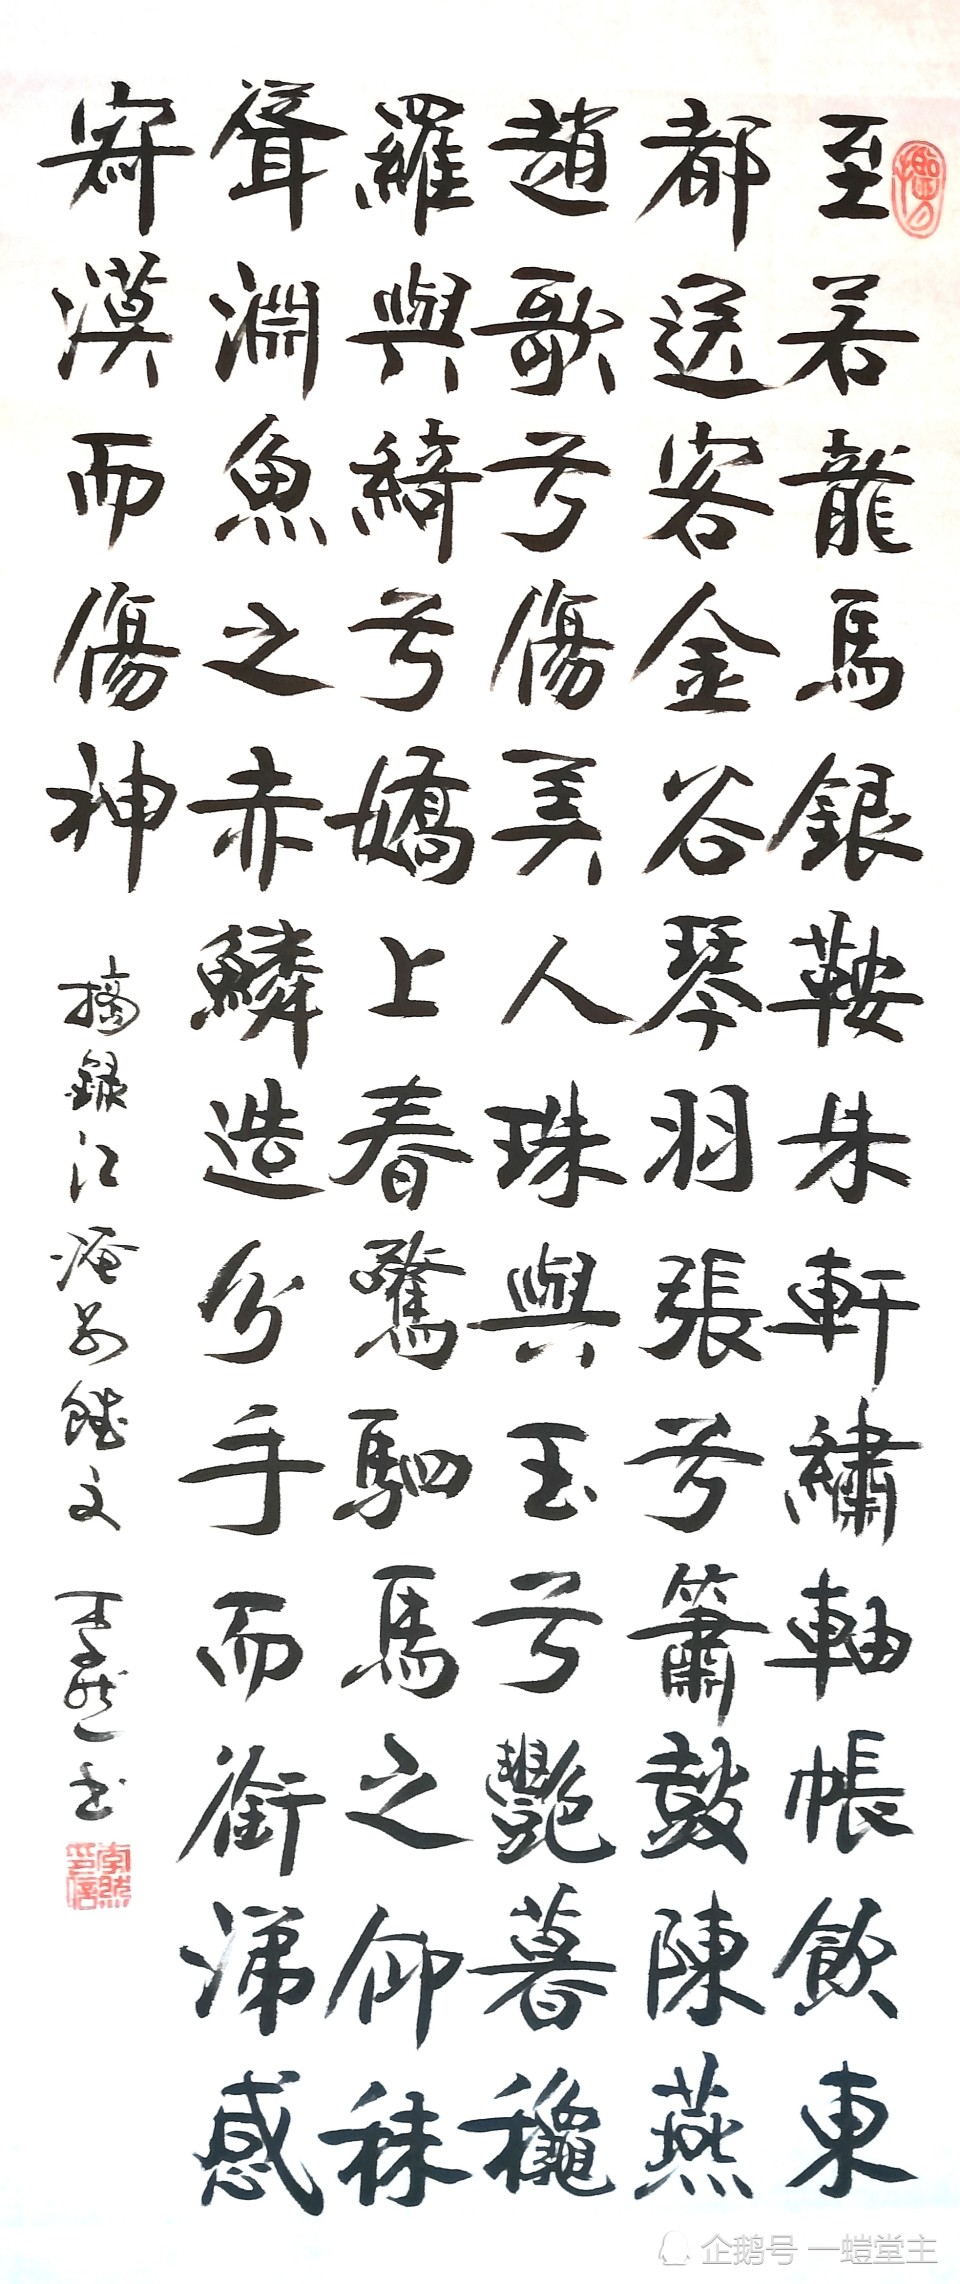 至若龍馬銀鞍朱軒繡軸帳飲東
都送客金谷琴羽張兮簫鼓陳燕
趙歌兮傷美人珠與玉兮艷暮龝
羅與綺兮嬌上春驚駟馬之仰秣
聳淵魚之赤鱗造分手而銜涕感
寂漠而傷神
摘錄江淹別賦文 李然书
李然印信
企鹅号 一螘堂主